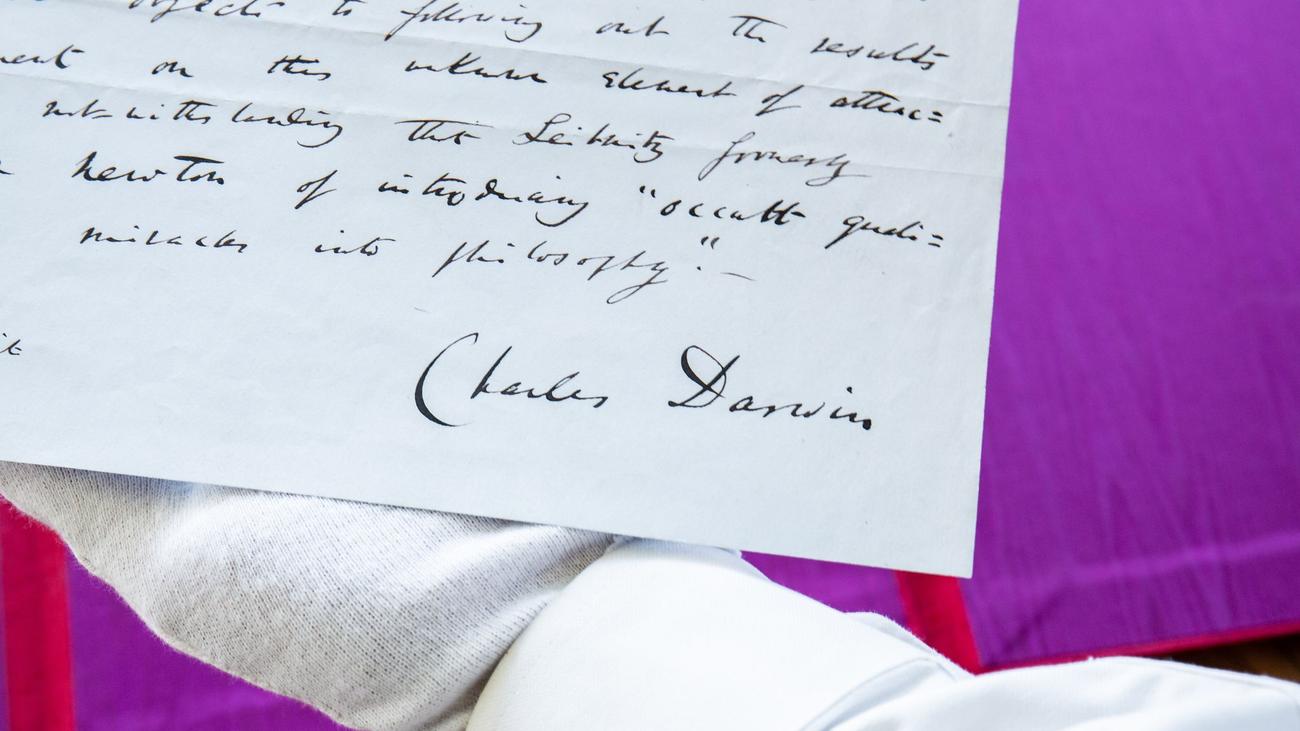 objects to following out the results
ent on this unknown element of attrac=
not-withstanding that Leibnitz formerly
Newton of introducing "occult quali=
miracles into philosophy."—
it
Charles Darwin